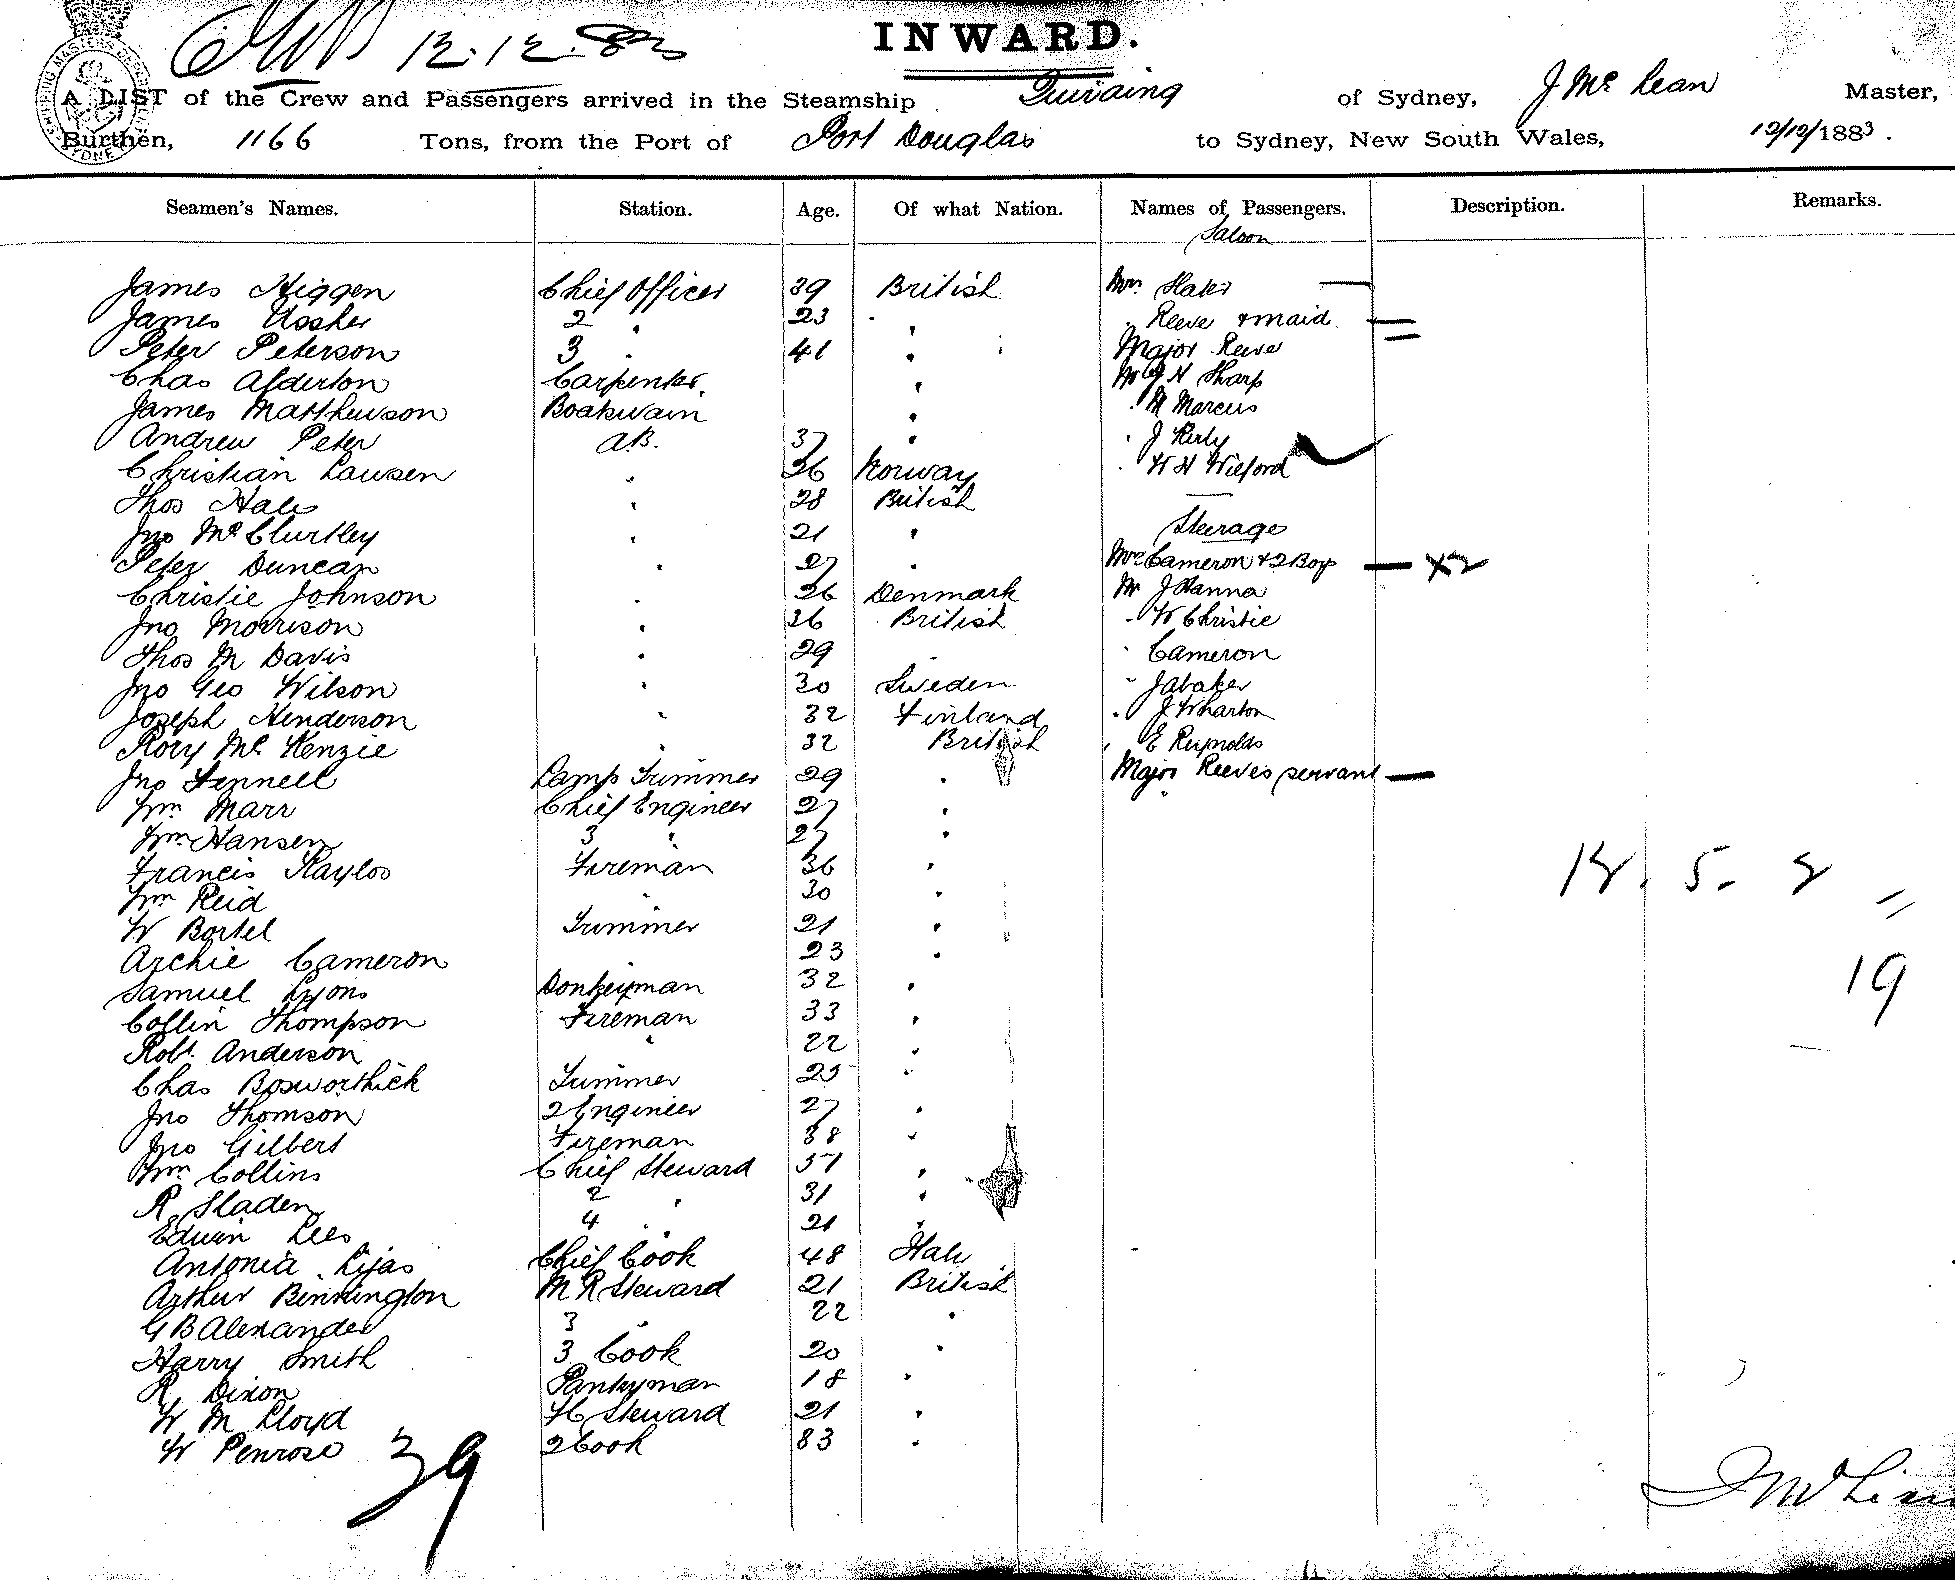 12.12.83
INWARD.
A LIST of the Crew and Passengers arrived in the Steamship Quiraing of Sydney, J Mc Lean Master,
Burthen, 1166 Tons, from the Port of Port Douglas to Sydney, New South Wales, 12/12/1883.
Seamen's Names. Station. Age. Of what Nation. Names of Passengers. Description. Remarks.
Saloon
James Higgen Chief Officer 39 British Mrs Slater
James Ussher 2 " 23 " " Reeve & maid
Peter Peterson 3 " 41 " Major Reeve
Chas Alderton Carpenter " Mr Sharp
James Matthewson Boatswain " " M Marcus
Andrew Peter A.B. 37 " " J
Christian Lawsen " 36 Norway " W H Wilford
Thos Hale " 28 British
Jno Mc Clurtley " 21 " Steerage
Peter Duncan " 27 " Mrs Cameron & 2 Boys x2
Christie Johnson " 26 Denmark Mr J Hanna
Jno Morrison " 36 British " W Christie
Thos M Davis " 29 " " Cameron
Jno Geo Wilson " 30 Sweden " J
Joseph Henderson " 32 Finland " J Wharton
Rory Mc Kenzie " 32 British " E Reynolds
Jno Fennell Lamp Trimmer 29 " Major Reeves servant
Wm Marr Chief Engineer 27 "
Wm Hansen 3 " 27 "
Francis Fireman 36 " 12. 5. 2
Wm Reid " 30 "
W Bortel Trimmer 21 "
Archie Cameron " 23 "
Samuel Lyons Donkeyman 32 " 19
Collin Thompson Fireman 33 "
Robt Anderson " 22 "
Chas Bosworthick Trimmer 25 "
Jno Thomson 2 Engineer 27 "
Jno Gilbert Fireman 38 "
Wm Collins Chief Steward 51 "
R Sladen 2 " 31 "
Edwin Lees 4 " 21 "
Antonia Lijas Chief Cook 48 Italy
Arthur Binnington M R Steward 21 British
G B Alexander 3 " 22 "
Harry Smith 3 Cook 20 "
R Dixon Pantryman 18 "
W M Lloyd Steward 21 "
W Penrose 2 Cook 83 "
39